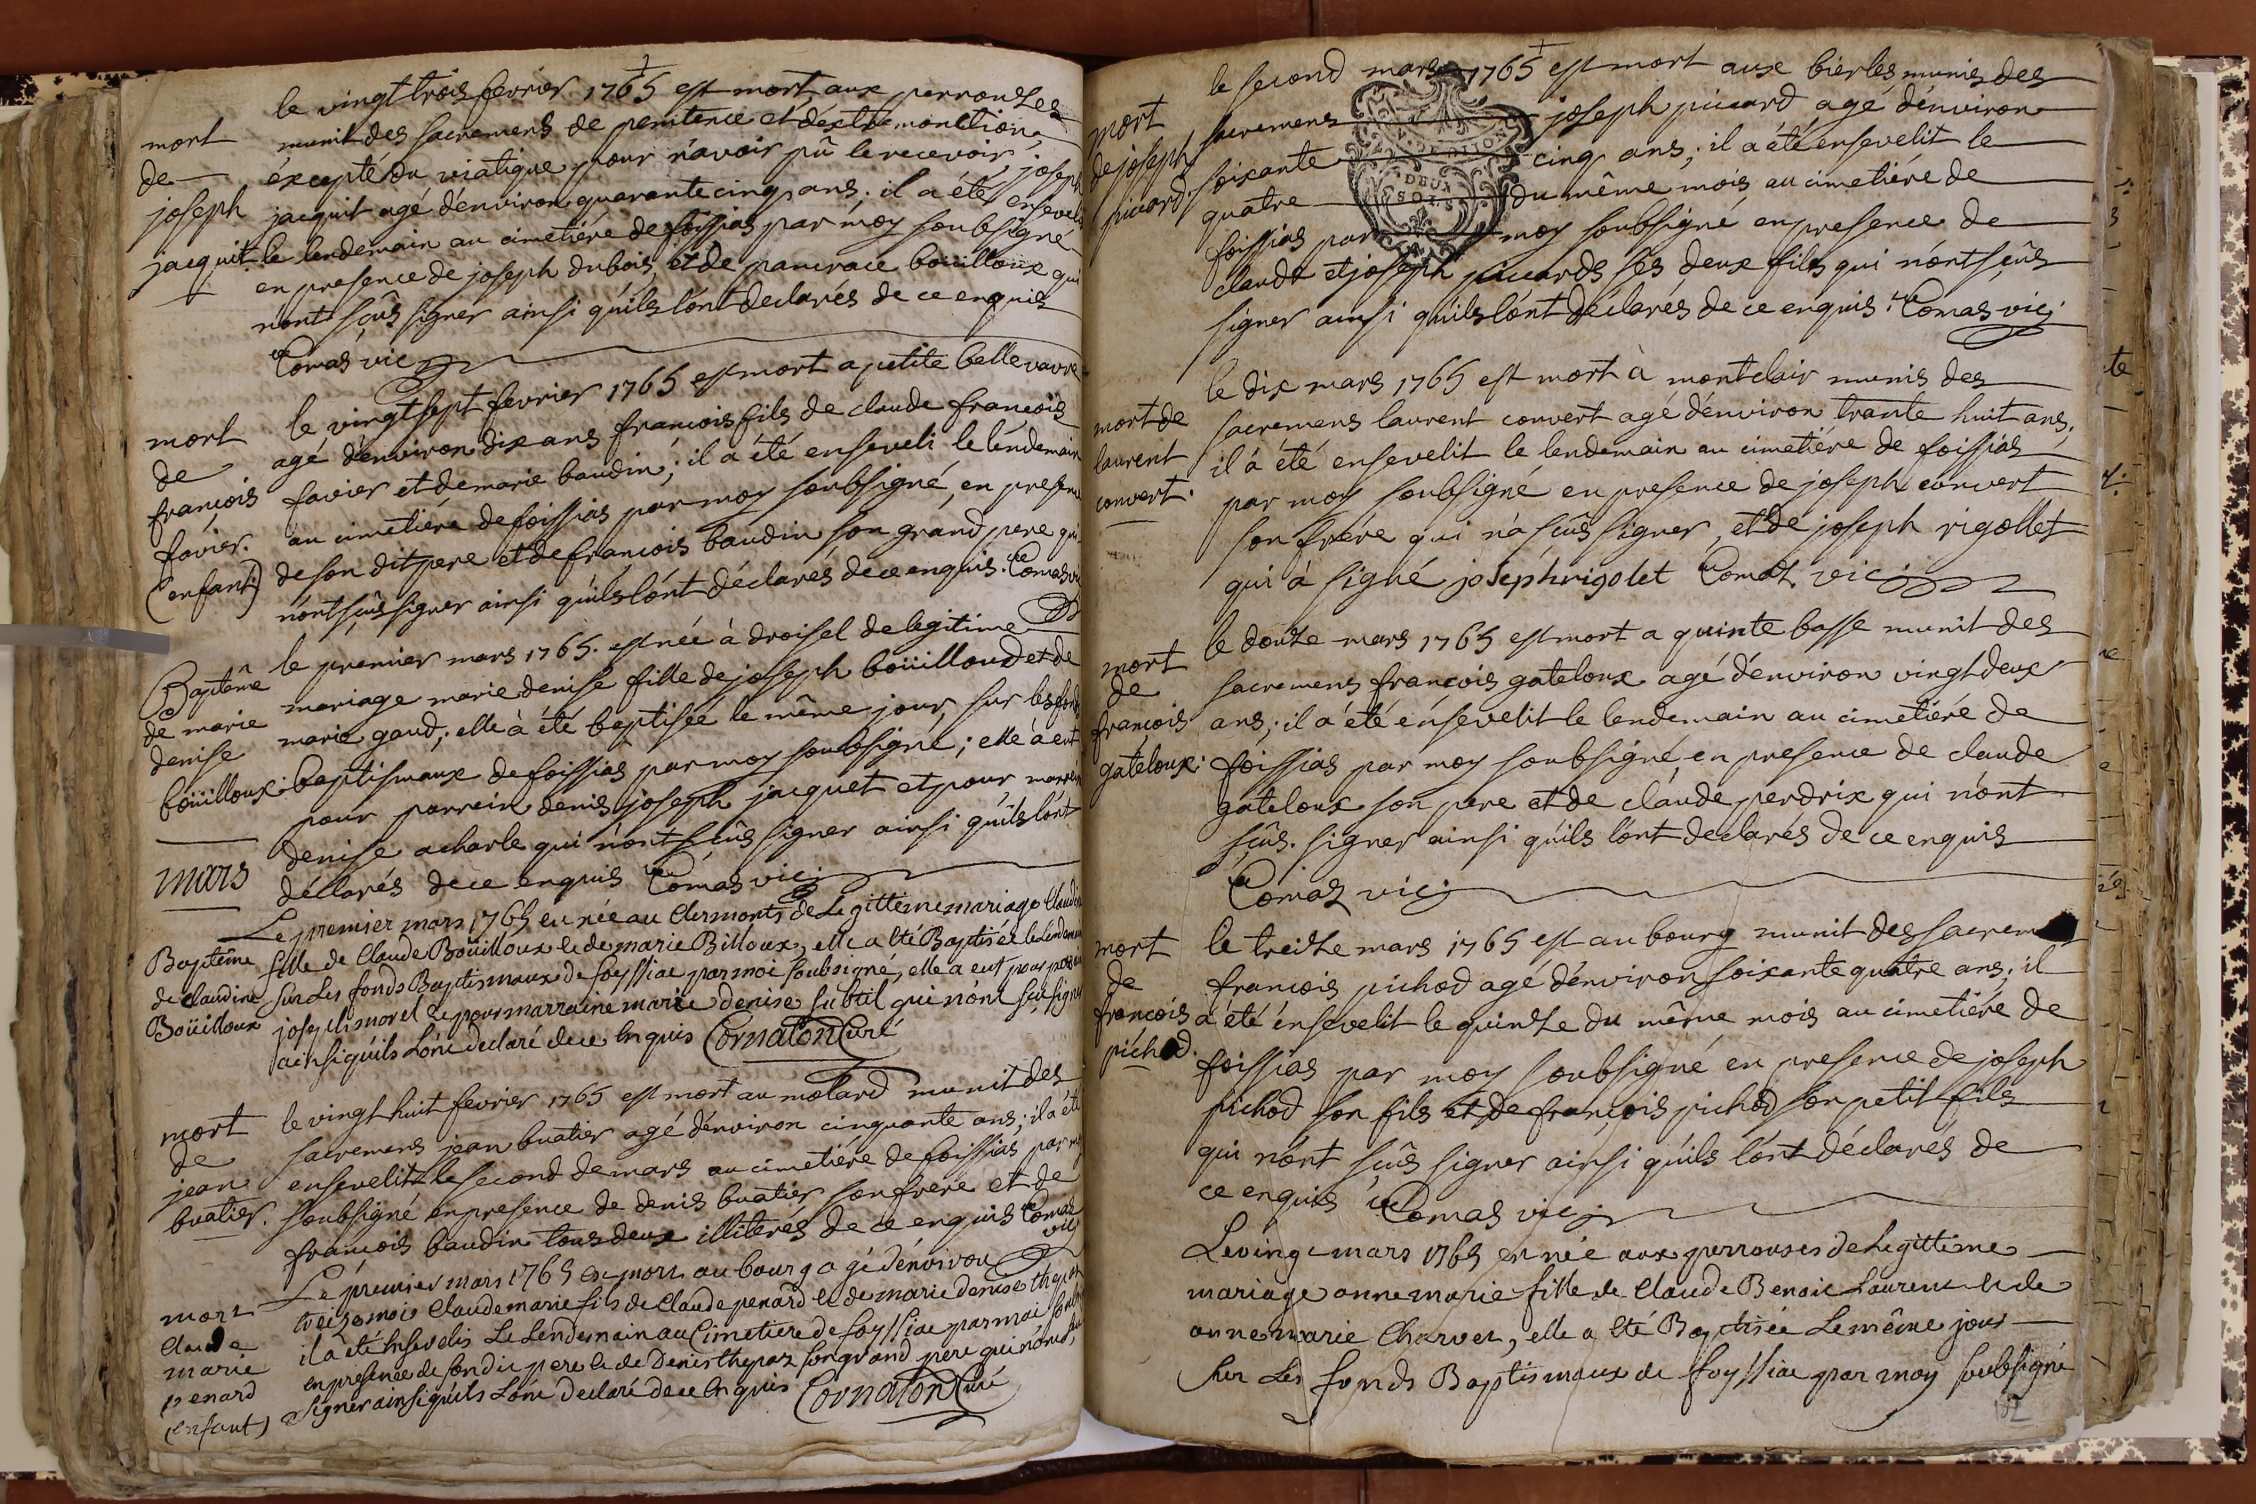 le vingt trois fevrier 1765 est mort aux perrouses
mort
de
joseph
jacquit
munit des sacremens de penitence et d'extremonction,
éxcepté du viatique pour n'avoir pû le recevoir, joseph
jacquit agé d'environ quarante cinq ans. il a été enseveli
le lendemain au cimetiére de foissias par moy soubsigné
en presence de joseph dubois et de pancrace boüilloux qui
n'ont sçûs signer ainsi qu'ils l'ont declarés de ce enquis
Comas vic
mort
de
françois
favier.
(enfant)
le vingt sept fevrier 1765 est mort a petite bellevavre
agé d'environ dix ans francois fils de claude francois
favier et de marie baudin; il a été enseveli le lendemain
au cimetiére de foissias par moy soubsigné, en presence
de son dit pere et de françois baudin son grand pere qui
n'ont sçûs signer ainsi qu'ils l'ont déclarés de ce enquis. Comas vic
Baptême
de marie
denise
boüilloux.
le premier mars 1765. est née à droisel de legitime
mariage marie denise fille de joseph boüilloud et de
marie gaud; elle à été baptisée le même jour, sur les fonds
baptismaux de foissias par moy soubsigné; elle à eut
pour parrein denis joseph jacquet et pour marreine
denise acharle qui n'ont sçûs signer ainsi qu'ils l'ont
déclarés de ce enquis Comas vic.
mars
Baptême
de Claudine
Boüilloux
Le premier mars 1765 en née au Clermonts de Legittime mariage Claudine
fille de Claude Boüilloux et de marie Billoux, elle a été Baptisée le Lendemain
sur Les fonds Baptismaux de foyssiac par moi soubsigné, elle a eut pour parrain
joseph morel et pour marraine marie denise subtil qui n'ont sçu signer
ainsi qu'ils L'ont declaré de ce Enquis Cornaton Curé
mort
de
jean
buatier.
le vingt huit fevrier 1765 est mort au molard munit des
sacremens jean buatier agé d'environ cinquante ans; il a été
ensevelit le second de mars au cimetiére de foissias par moy
soubsigné en presence de denis buatier son frere et de
françois baudin tous deux illiterés de ce enquis Comas
vic
mort
Claude
marie
penard
(enfant)
Le premier mars 1765 en mort au bourg agé d'environ
treize mois Claude marie fils de Claude penard et de marie denise thepaz
il a été Ensevelis Le Lendemain au Cimetiere de foyssiac par moi soubsigné
en presence de son dit pere et de Denis thepaz son grand pere qui n'ont sçu
signer ainsi qu'ils L'ont declaré de ce Enquis Cornaton Curé
mort
de joseph
picard
le second mars 1765 est mort aux bierles munis des
sacremens joseph piccard agé d'environ
soixante cinq ans; il a été ensevelit le
quatre du même mois au cimetiére de
foissias par moy soubsigné en presence de
claude et joseph piccards ses deux fils qui n'ont sçûs
signer ainsi qu'ils l'ont déclarés de ce enquis. Comas vic.
DEUX
SOLS
mort de
laurent
convert.
le dix mars 1765 est mort à montclair munis des
sacremens laurent convert agé d'environ trante huit ans;
il à été ensevelit le lendemain au cimetiére de foissias
par moy soubsigné en presence de joseph convert
son frére qui n'a sçûs signer, et de joseph rigollet
qui à signé joseph rigolet Comas vic.
mort
de
francois
gateloux.
le douze mars 1765 est mort a quinte basse munit des
sacremens francois gateloux agé d'environ vingt deux
ans; il a été ensevelit le lendemain au cimetiére de
foissias par moy soubsigné en presence de claude
gateloux son pere et de claude perdrix qui n'ont
sçûs. signer ainsi qu'ils l'ont declarés de ce enquis
Comas vic.
mort
de
francois
pichod.
le treise mars 1765 est au bourg munit des sacremens
francois pichod agé d'environ soixante quatre ans; il
a été ensevelit le quinse du même mois au cimetiére de
foissias par moy soubsigné en presence de joseph
pichod son fils et de françois pichod son petit fils
qui n'ont sçûs signer ainsi qu'ils l'ont déclarés de
ce enquis Comas vic.
Le vingt mars 1765 en née aux perrouses de Legittime
mariage anne marie fille de Claude Benoit Laurent et de
anne marie Charvet, elle a été Baptisée Le même jour
sur Les fonds Baptismaux de foyssiac par moy soubsigné
182